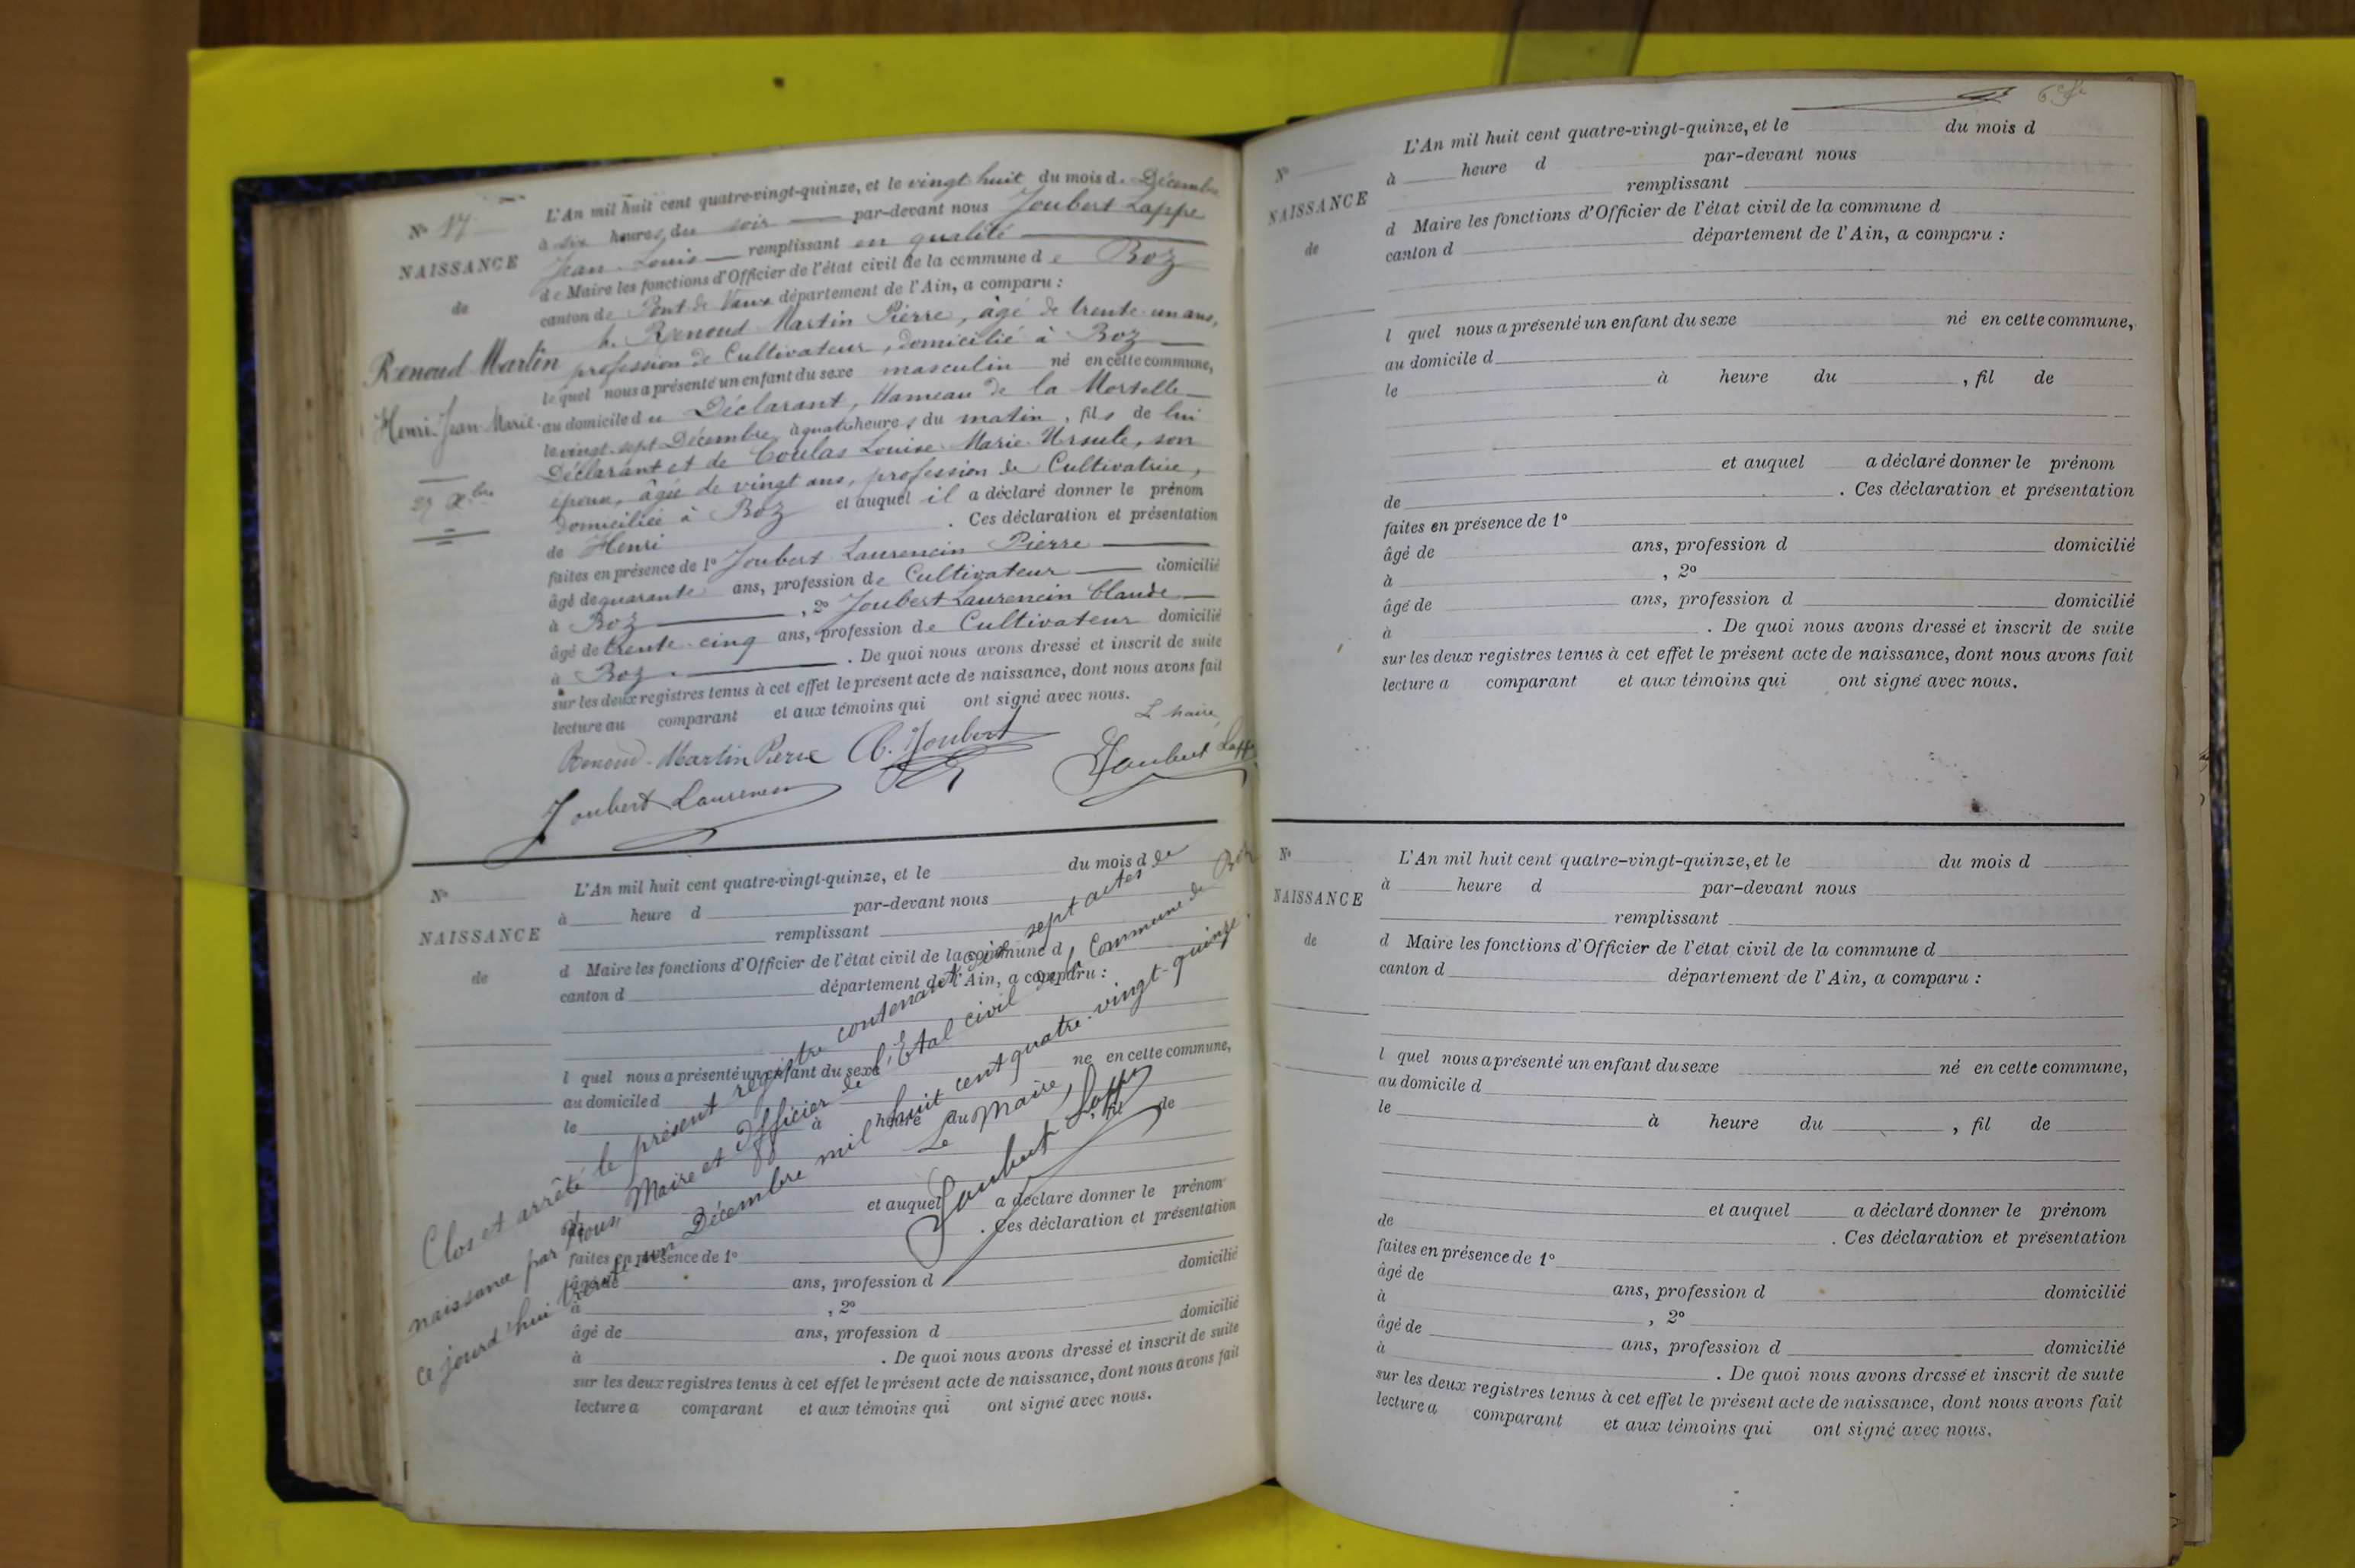 N° 17
NAISSANCE
de
Renoud Martin
Henri-Jean-Marie
27 Xbre
L'An mil huit cent quatre-vingt-quinze, et le vingt huit du mois de Décembre
à six heures du soir par-devant nous Joubert Lappe
Jean-Louis remplissant en qualité
de Maire les fonctions d'Officier de l'état civil de la commune de Boz
canton de Pont de Vaux département de l'Ain, a comparu :
Renoud Martin Pierre, âgé de trente-un ans,
profession de Cultivateur, domicilié à Boz
lequel nous a présenté un enfant du sexe masculin né en cette commune,
au domicile du Déclarant, Hameau de la
le vingt-sept Décembre, à quatre heures du matin, fils de lui
Déclarant et de Coulas Louise-Marie-Ursule, son
épouse, âgée de vingt ans, profession de Cultivatrice,
domiciliée à Boz et auquel il a déclaré donner le prénom
de Henri . Ces déclaration et présentation
faites en présence de 1° Joubert Laurencin Pierre
âgé de quarante ans, profession de Cultivateur domicilié
à Boz , 2° Joubert Laurencin Claude
âgé de trente-cinq ans, profession de Cultivateur domicilié
à Boz . De quoi nous avons dressé et inscrit de suite
sur les deux registres tenus à cet effet le présent acte de naissance, dont nous avons fait
lecture au comparant et aux témoins qui ont signé avec nous.
Le Maire,
Renoud-Martin Pierre C. Joubert Joubert Lappe
Joubert Laurencin
N°
NAISSANCE
de
L'An mil huit cent quatre-vingt-quinze, et le du mois d
à heure d par-devant nous
remplissant
d Maire les fonctions d'Officier de l'état civil de la commune d
canton d département de l'Ain, a comparu :
l quel nous a présenté un enfant du sexe né en cette commune,
au domicile d
le à heure du , fil de
et auquel a déclaré donner le prénom
de . Ces déclaration et présentation
faites en présence de 1°
âgé de ans, profession d domicilié
à , 2°
âgé de ans, profession d domicilié
à . De quoi nous avons dressé et inscrit de suite
sur les deux registres tenus à cet effet le présent acte de naissance, dont nous avons fait
lecture a comparant et aux témoins qui ont signé avec nous.
Clos et arrêté le présent registre contenant dix sept actes de
naissance par Nous, Maire et Officier de l'Etat civil de la Commune de Boz
ce jourd'hui trente-un Décembre mil huit cent quatre-vingt-quinze.
Le Maire,
Joubert Lappe
N°
NAISSANCE
de
L'An mil huit cent quatre-vingt-quinze, et le du mois d
à heure d par-devant nous
remplissant
d Maire les fonctions d'Officier de l'état civil de la commune d
canton d département de l'Ain, a comparu :
l quel nous a présenté un enfant du sexe né en cette commune,
au domicile d
le à heure du , fil de
et auquel a déclaré donner le prénom
de . Ces déclaration et présentation
faites en présence de 1°
âgé de ans, profession d domicilié
à , 2°
âgé de ans, profession d domicilié
à . De quoi nous avons dressé et inscrit de suite
sur les deux registres tenus à cet effet le présent acte de naissance, dont nous avons fait
lecture a comparant et aux témoins qui ont signé avec nous.
N°
NAISSANCE
de
L'An mil huit cent quatre-vingt-quinze, et le du mois d
à heure d par-devant nous
remplissant
d Maire les fonctions d'Officier de l'état civil de la commune d
canton d département de l'Ain, a comparu :
l quel nous a présenté un enfant du sexe né en cette commune,
au domicile d
le à heure du , fil de
et auquel a déclaré donner le prénom
de . Ces déclaration et présentation
faites en présence de 1°
âgé de ans, profession d domicilié
à , 2°
âgé de ans, profession d domicilié
à . De quoi nous avons dressé et inscrit de suite
sur les deux registres tenus à cet effet le présent acte de naissance, dont nous avons fait
lecture a comparant et aux témoins qui ont signé avec nous.